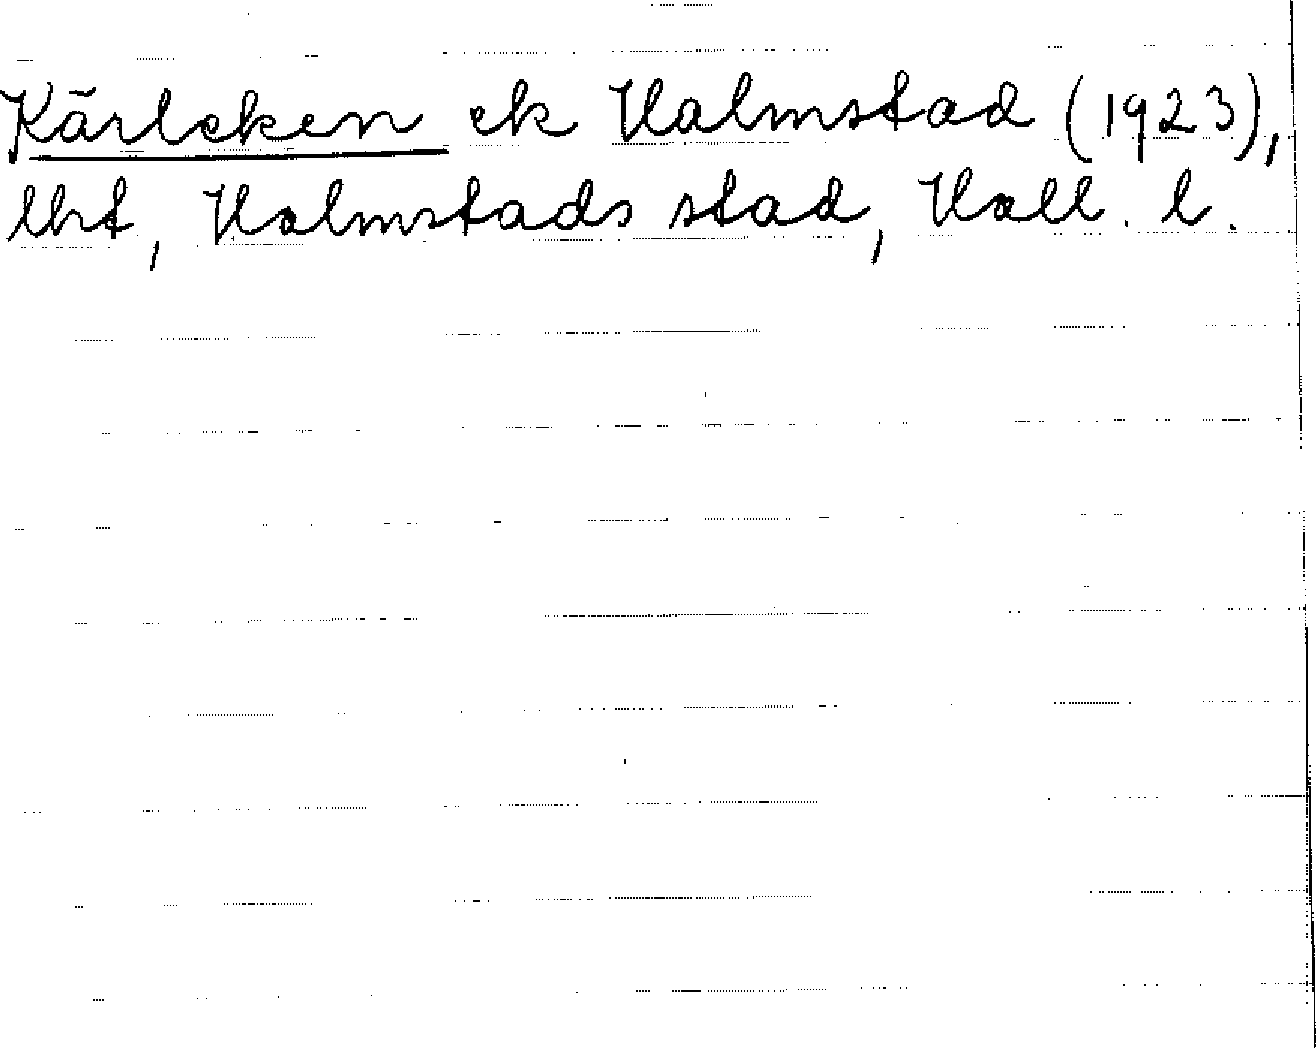 Kärleken ek Halmstad (1923),
lht, Halmstads stad, Hall. l.